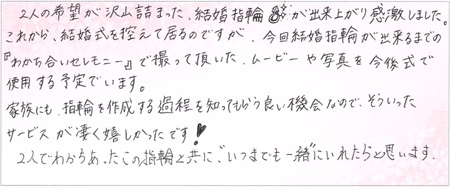 2人の希望が沢山詰まった、結婚指輪が出来上がり感激しました。
これから、結婚式を控えて居るのですが、今回結婚指輪が出来るまでの
『わかち合いセレモニー』で撮って頂いた、ムービーや写真を今後式で
使用する予定でいます。
家族にも、指輪を作成する過程を知ってもらう良い機会なので、そういった
サービスが凄く嬉しかったです!
2人でわかちあったこの指輪と共に、いつまでも一緒にいれたらと思います.